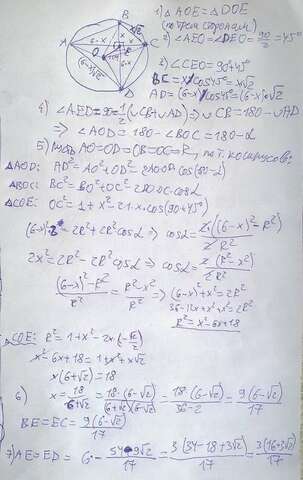 B
x√2
6-x
x
A
E
C
O
6-x
x
(6-x)√2
D
1) △AOE = △DOE
(по трем сторонам)
2) ∠AEO = ∠DEO = 90/2 = 45°
3) ∠CEO = 90+45°
BC = x/cos45° = x√2
AD = (6-x)/cos45° = (6-x)√2
4) ∠AED = 90 = 1/2 (∪CB + ∪AD) ⇒ ∪CB = 180 - ∪AD
⇒ ∠AOD = 180 - ∠BOC = 180 - α
5) AO = OD = OB = OC = R, по т. косинусов:
△AOD: AD² = AO² + OD² - 2AO·OD cos(180-α)
△BOC: BC² = BO² + OC² - 2BO·OC·cosα
△COE: OC² = 1 + x² - 2·1·x·cos(90+45°)
(6-x)²·2 = 2R² + 2R² cosα ⇒ cosα = 2((6-x)² - R²)/2R²
2x² = 2R² - 2R² cosα ⇒ cosα = 2(R² - x²)/2R²
((6-x)² - R²)/R² = (R² - x²)/R² ⇒ (6-x)² + x² = 2R²
36 - 12x + x² + x² = 2R²
R² = x² - 6x + 18
△COE: R² = 1 + x² - 2x(-√2/2)
x² - 6x + 18 = 1 + x² + x√2
x(6+√2) =
6) x =
BE = EC = 9(6-√2)/17
7) AE = ED = 6 - (54 - 9√2)/17 =